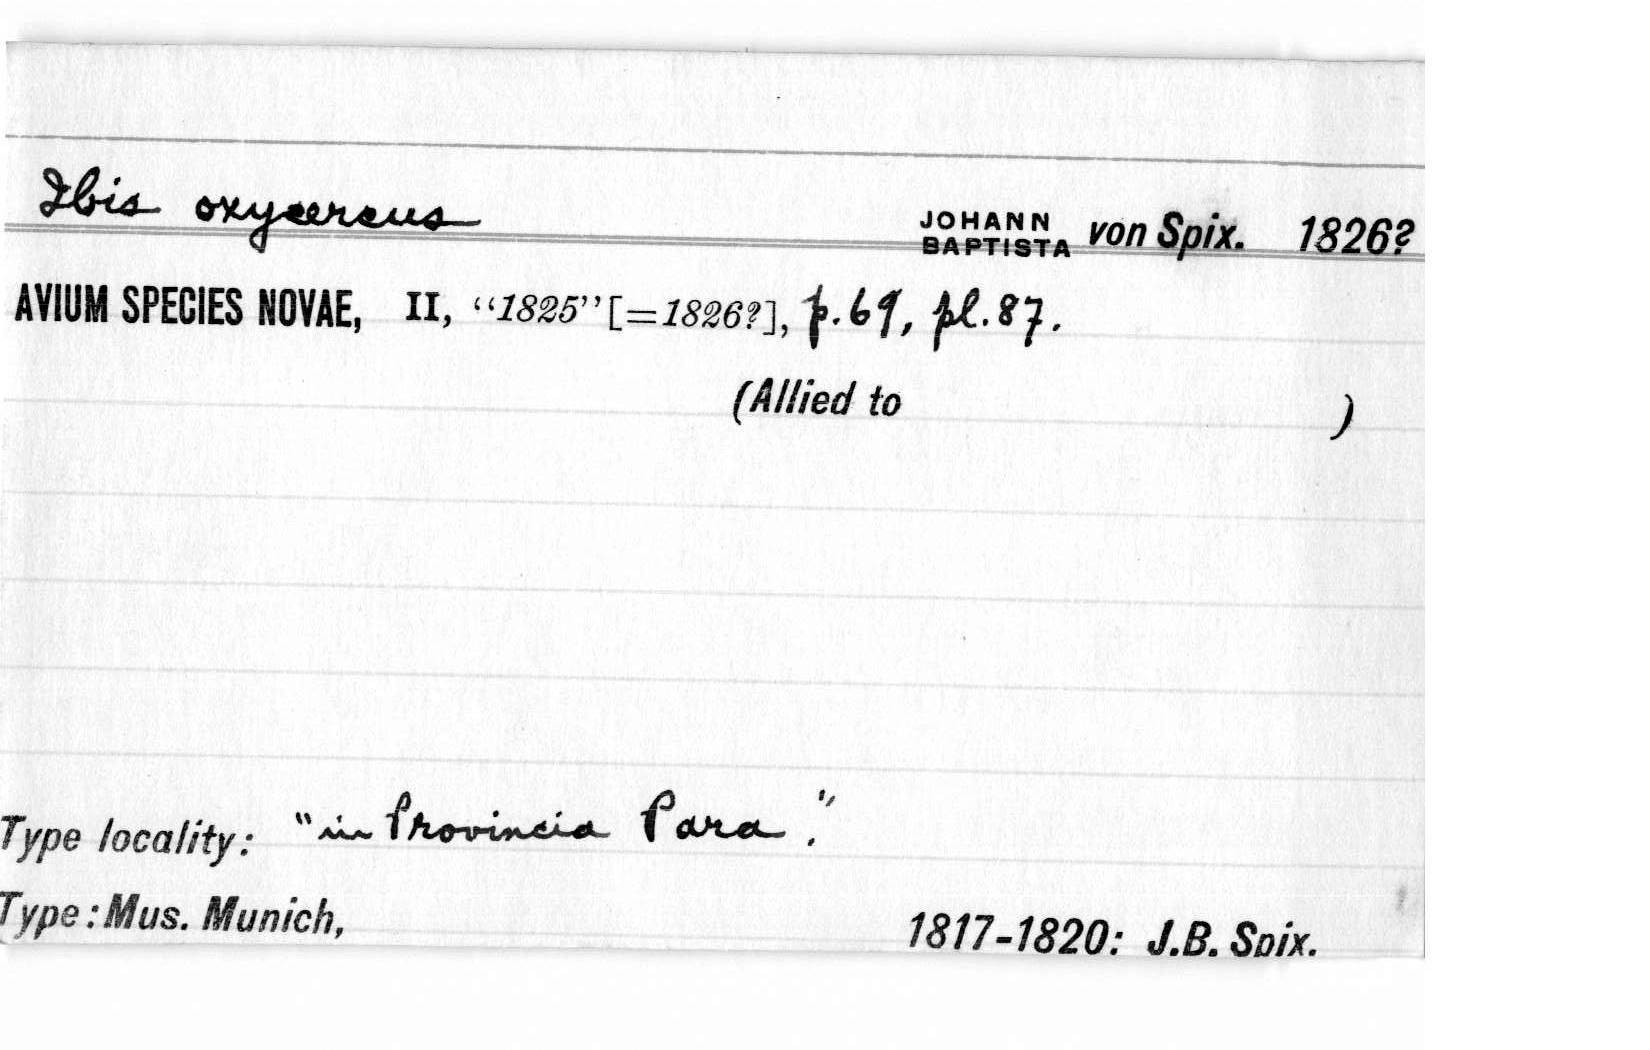 Ibis oxycercus JOHANN BAPTISTA von Spix. 1826?
AVIUM SPECIES NOVAE, II, "1825" [=1826?], p. 69, pl. 87.
(Allied to )
Type locality: "in Provincia Para."
Type: Mus. Munich, 1817-1820: J.B. Spix.